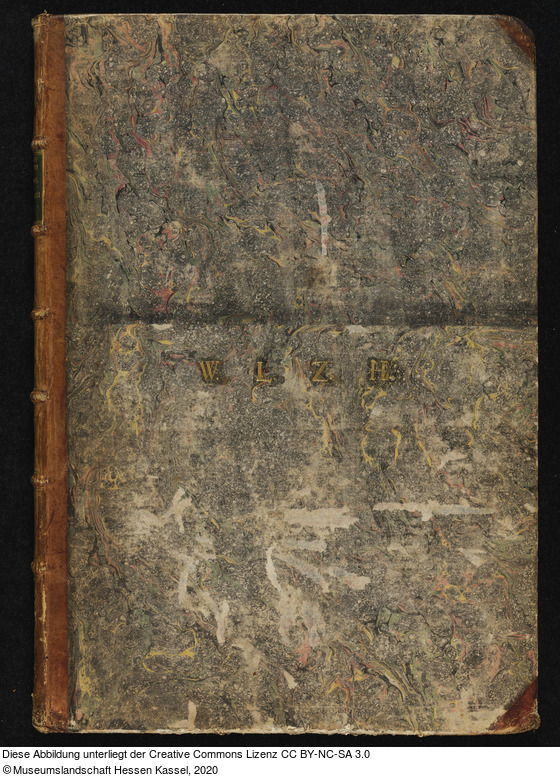 W. L. Z. H.
Diese Abbildung unterliegt der Creative Commons Lizenz CC BY-NC-SA 3.0
©Museumslandschaft Hessen Kassel, 2020